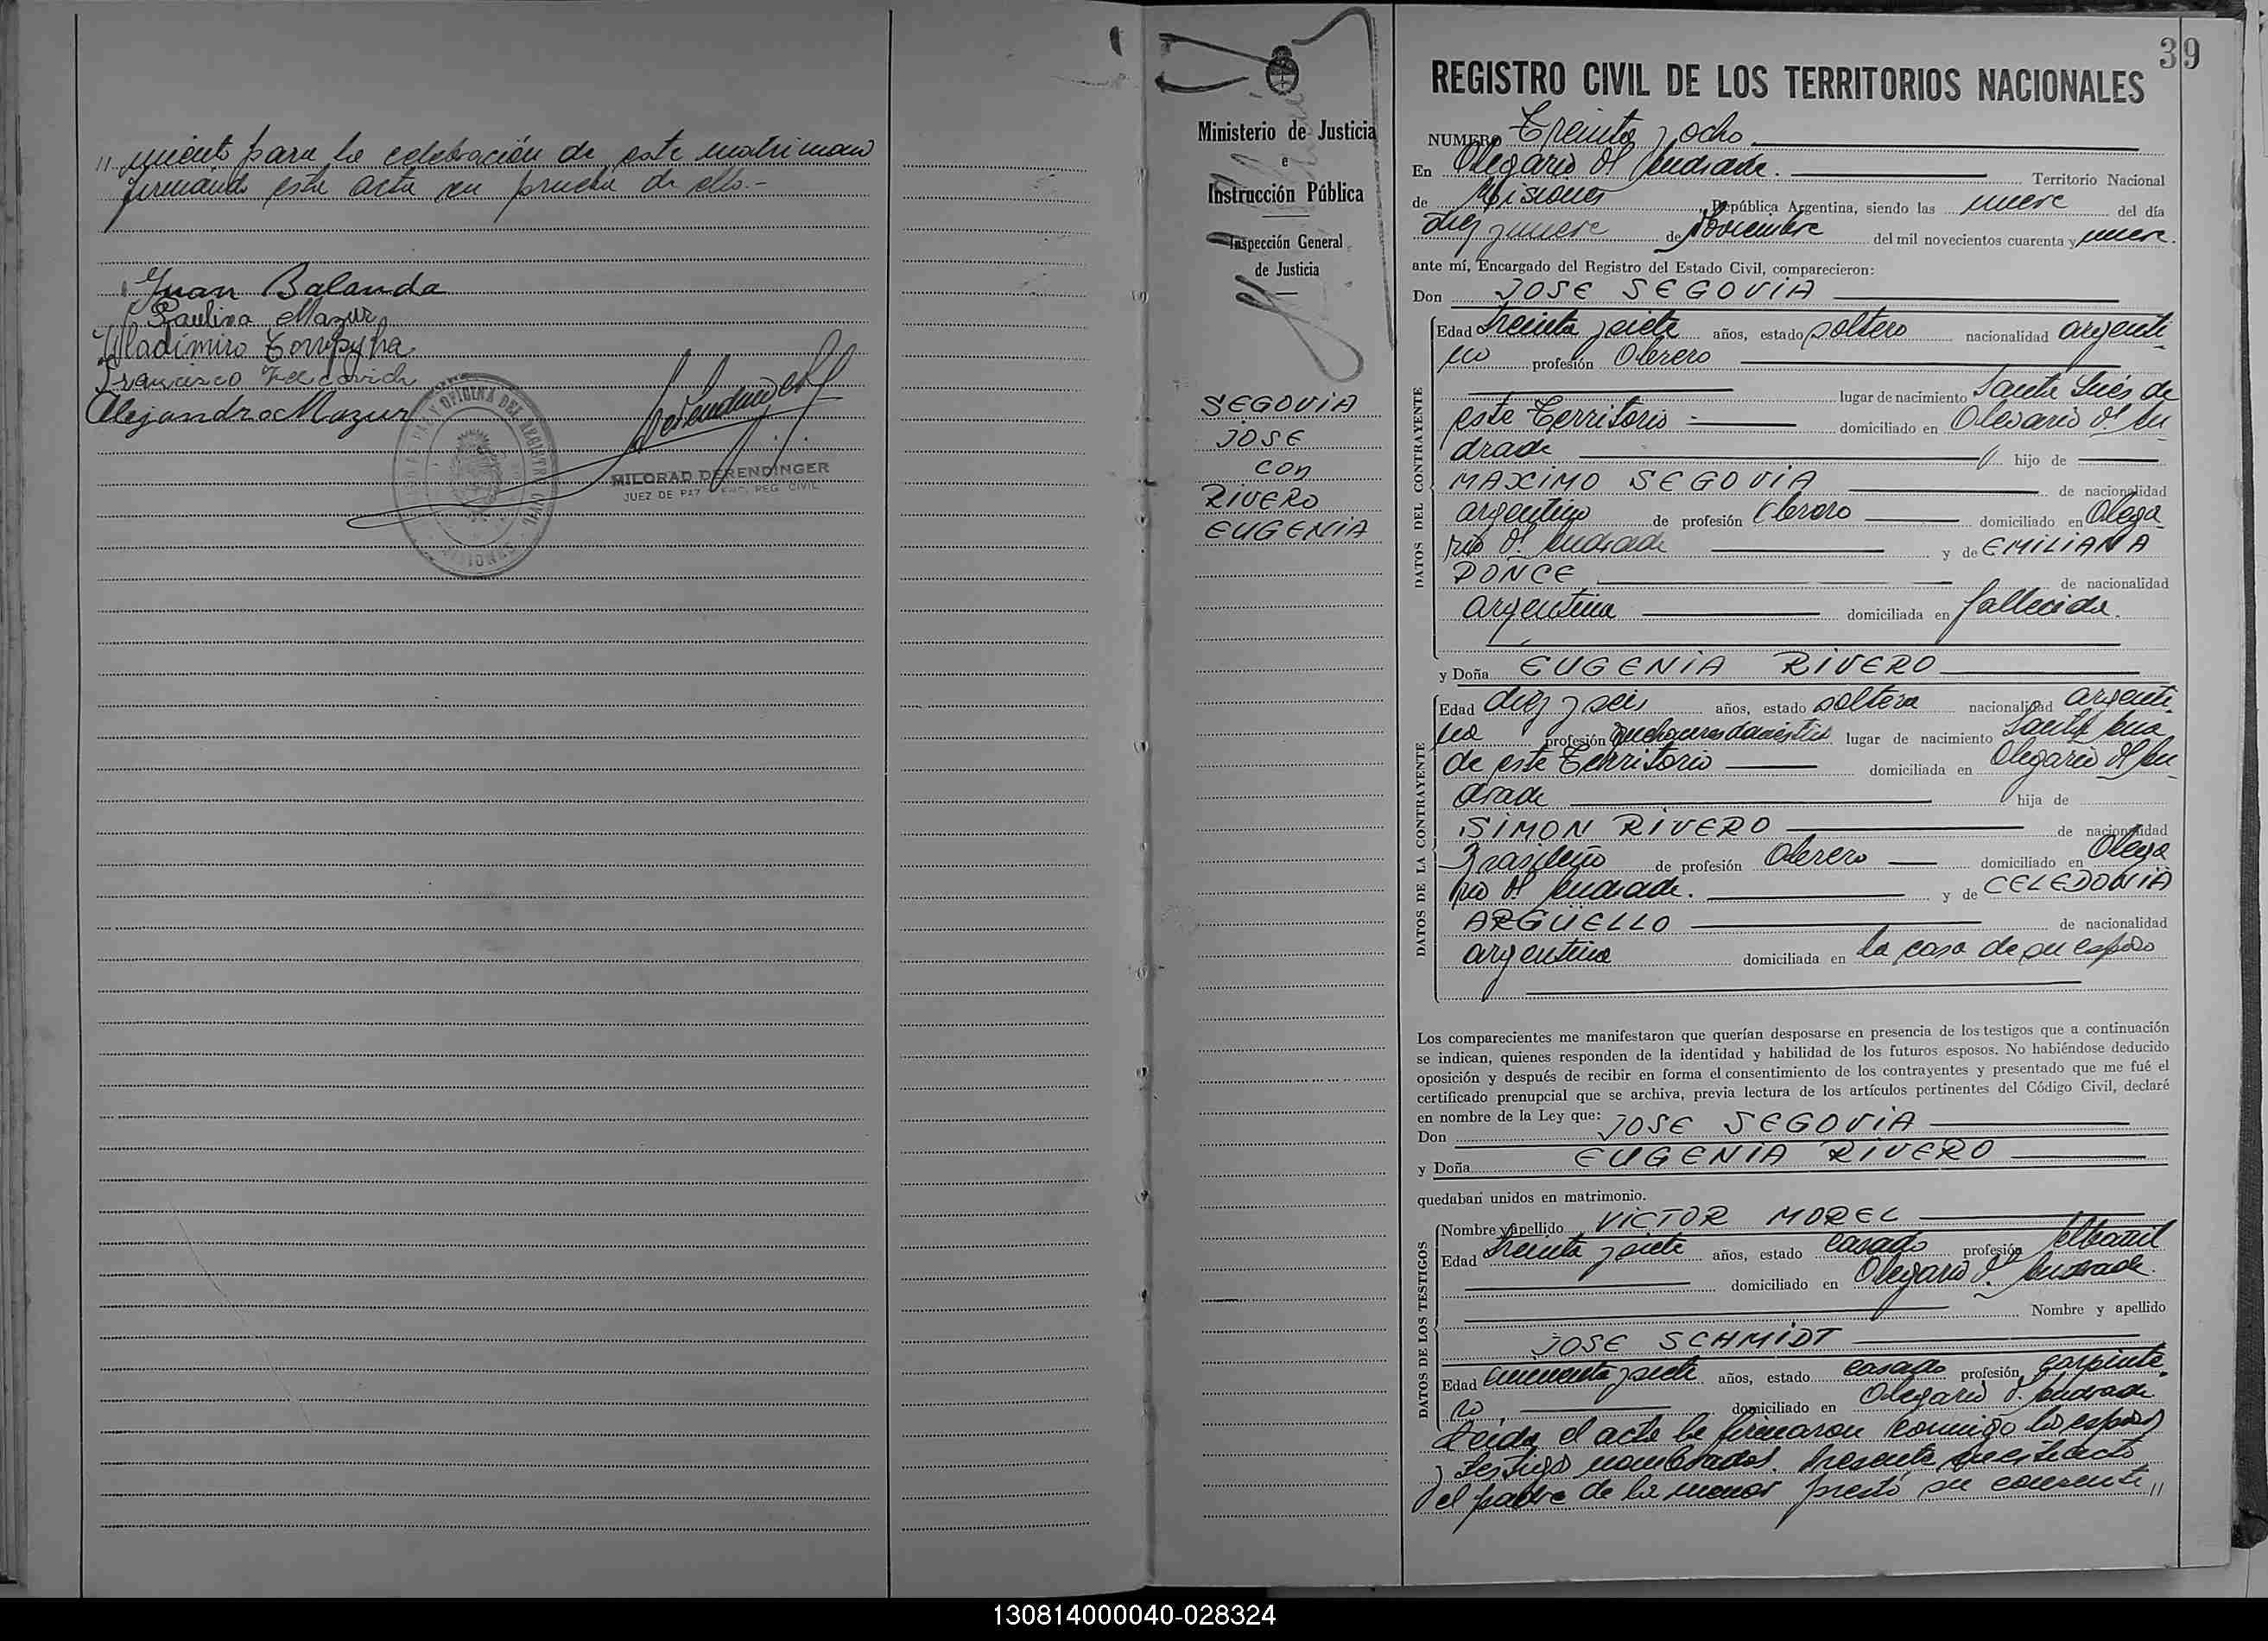 " miento para la celebración de este matrimonio
firmando este acta en prueba de ello.-
Juan Balanda
Paulina Mazur
Wladimiro
Francisco
Alejandro Mazur
MILORAD DERENDINGER
JUEZ DE PAZ Y ENC. REG. CIVIL
39
Ministerio de Justicia
e
Instrucción Pública
Inspección General
de Justicia
SEGOVIA
JOSE
CON
RIVERO
EUGENIA
REGISTRO CIVIL DE LOS TERRITORIOS NACIONALES
NUMERO Treinta y ocho
En Olegario V. Andrade. Territorio Nacional
de Misiones República Argentina, siendo las nueve del día
diez y nueve de Noviembre del mil novecientos cuarenta y nueve.
ante mí, Encargado del Registro del Estado Civil, comparecieron:
Don JOSE SEGOVIA
DATOS DEL CONTRAYENTE
Edad treinta y siete años, estado soltero nacionalidad argenti
no profesión Obrero
lugar de nacimiento Santa Inés de
este Territorio domiciliado en Olegario V. An
drade hijo de
MAXIMO SEGOVIA de nacionalidad
argentino de profesión Obrero domiciliado en Olega
rio V. Andrade y de EMILIANA
PONCE de nacionalidad
argentina domiciliada en fallecida.
y Doña EUGENIA RIVERO
DATOS DE LA CONTRAYENTE
Edad diez y seis años, estado soltera nacionalidad argenti
na profesión quehaceres domésticos lugar de nacimiento Santa Ana
de este Territorio domiciliada en Olegario V. An
drade hija de
SIMON RIVERO de nacionalidad
Brasileño de profesión Obrero domiciliado en Olega
rio V. Andrade. y de CELEDONIA
ARGÜELLO de nacionalidad
argentina domiciliada en la casa de su esposo
Los comparecientes me manifestaron que querían desposarse en presencia de los testigos que a continuación
se indican, quienes responden de la identidad y habilidad de los futuros esposos. No habiéndose deducido
oposición y después de recibir en forma el consentimiento de los contrayentes y presentado que me fué el
certificado prenupcial que se archiva, previa lectura de los artículos pertinentes del Código Civil, declaré
en nombre de la Ley que:
Don JOSE SEGOVIA
y Doña EUGENIA RIVERO
quedaban unidos en matrimonio.
DATOS DE LOS TESTIGOS
Nombre y apellido VICTOR MOREL
Edad treinta y siete años, estado casado profesión Albañil
domiciliado en Olegario V. Andrade.
Nombre y apellido
JOSE SCHMIDT
Edad cincuenta y siete años, estado casado profesión carpinte
ro, domiciliado en Olegario V. Andrade
Leida el acta la firmaron conmigo los esposos
y testigos nombrados. Presente en este acto
el padre de la menor prestó su consenti "
130814000040-028324